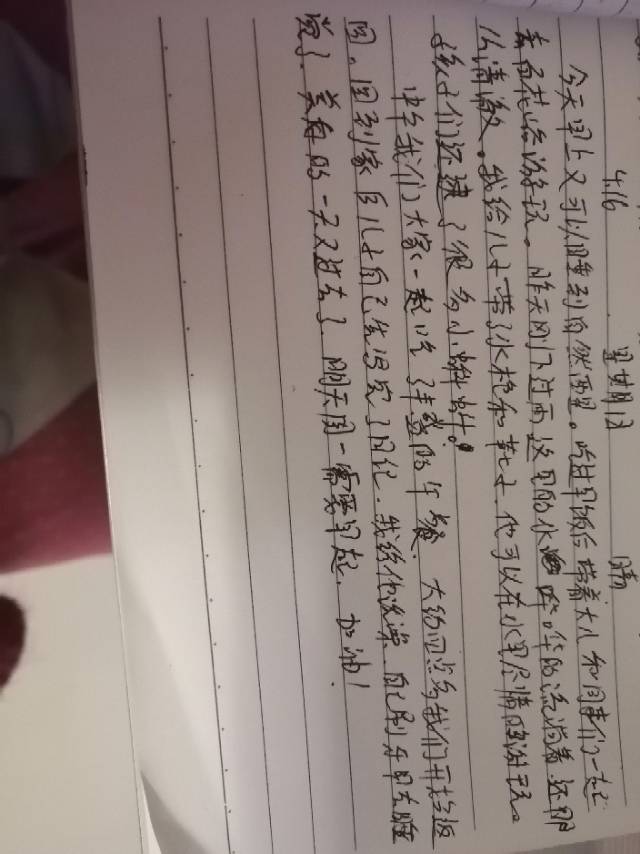 4.16 星期日 晴
今天早上又可以睡到自然醒。吃过早饭后带着大儿和同事们一起
去百花谷游玩。昨天刚下过雨这里的水哗哗的流淌着还那
么清澈。我给儿子带了水枪和鞋子他可以在水里尽情的游玩。
孩子们还捉了很多小蝌蚪。
中午我们大家一起吃了丰盛的午餐,大约四点多我们开始返
回,回到家后儿子自己坐那写了日记,我给他洗澡 自己刷牙早去睡
觉了。美好的一天又过去了 明天周一需要早起,加油!